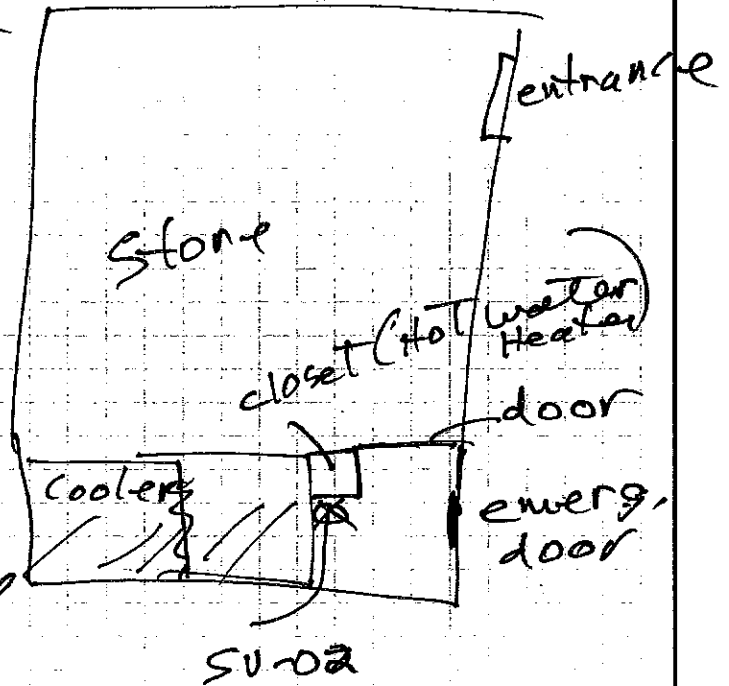 entrance
Store
closet (Hot water
Heater)
door
Cooler
emerg.
door
SV-02